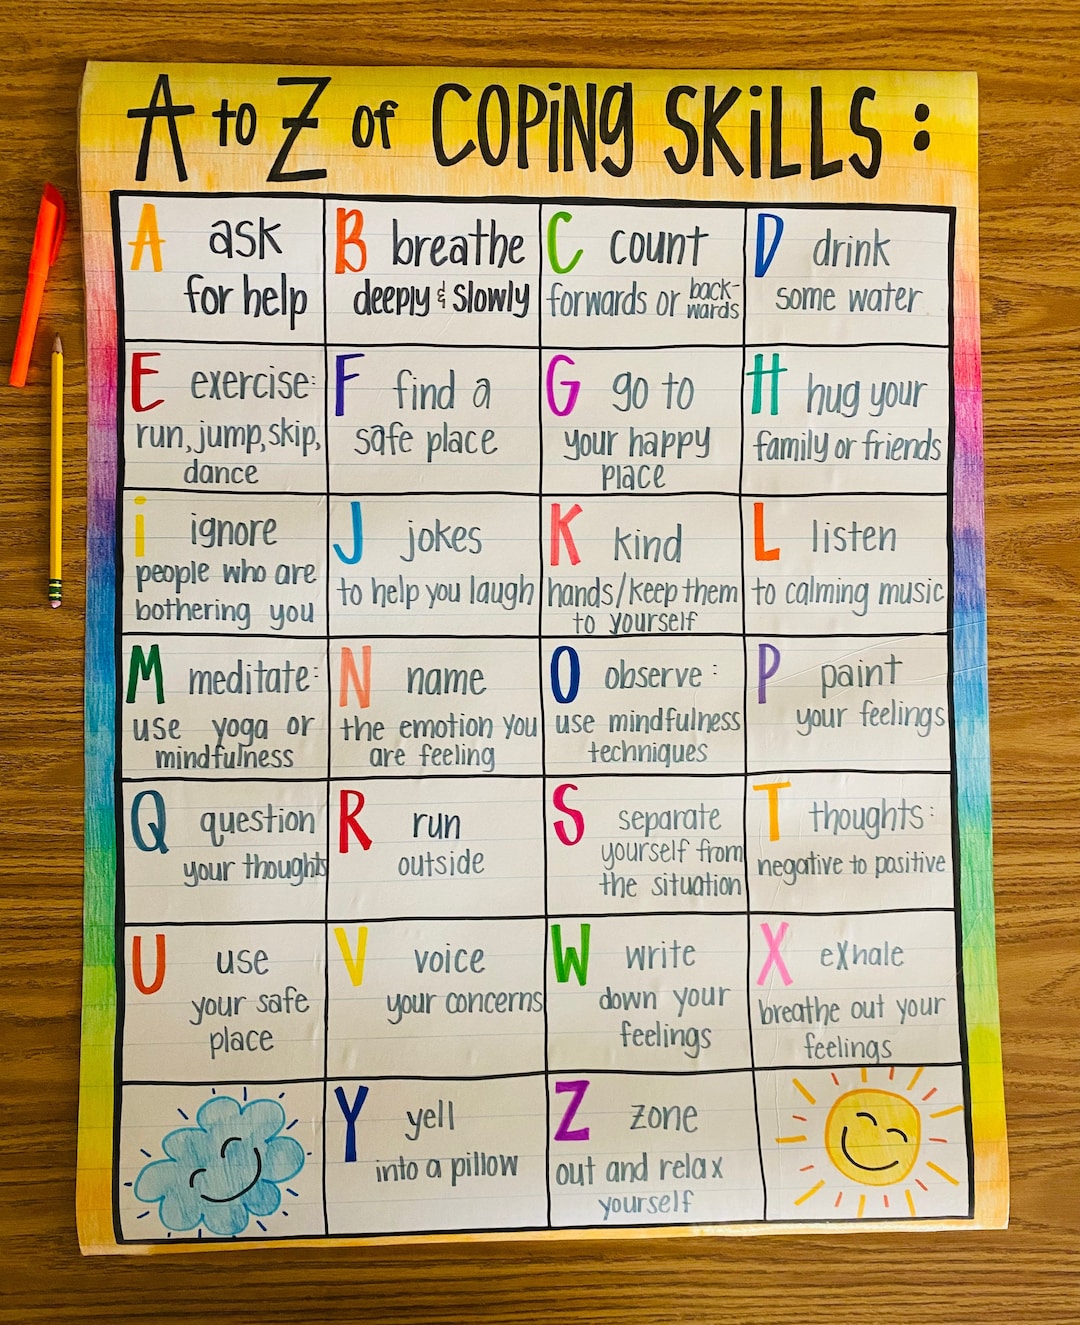 A to Z of COPiNg SKiLLS :
A ask
for help
B breathe
deeply & slowly
C count
forwards or back-
wards
D drink
some water
E exercise:
run, jump, skip,
dance
F find a
safe place
G go to
your happy
place
H hug your
family or friends
i ignore
people who are
bothering you
J jokes
to help you laugh
K kind
hands/keep them
to yourself
L listen
to calming music
M meditate:
use yoga or
mindfulness
N name
the emotion you
are feeling
O observe:
use mindfulness
techniques
P paint
your feelings
Q question
your thoughts
R run
outside
S separate
yourself from
the situation
T thoughts:
negative to positive
U use
your safe
place
V voice
your concerns
W write
down your
feelings
X eXhale
breathe out your
feelings
Y yell
into a pillow
Z zone
out and relax
yourself